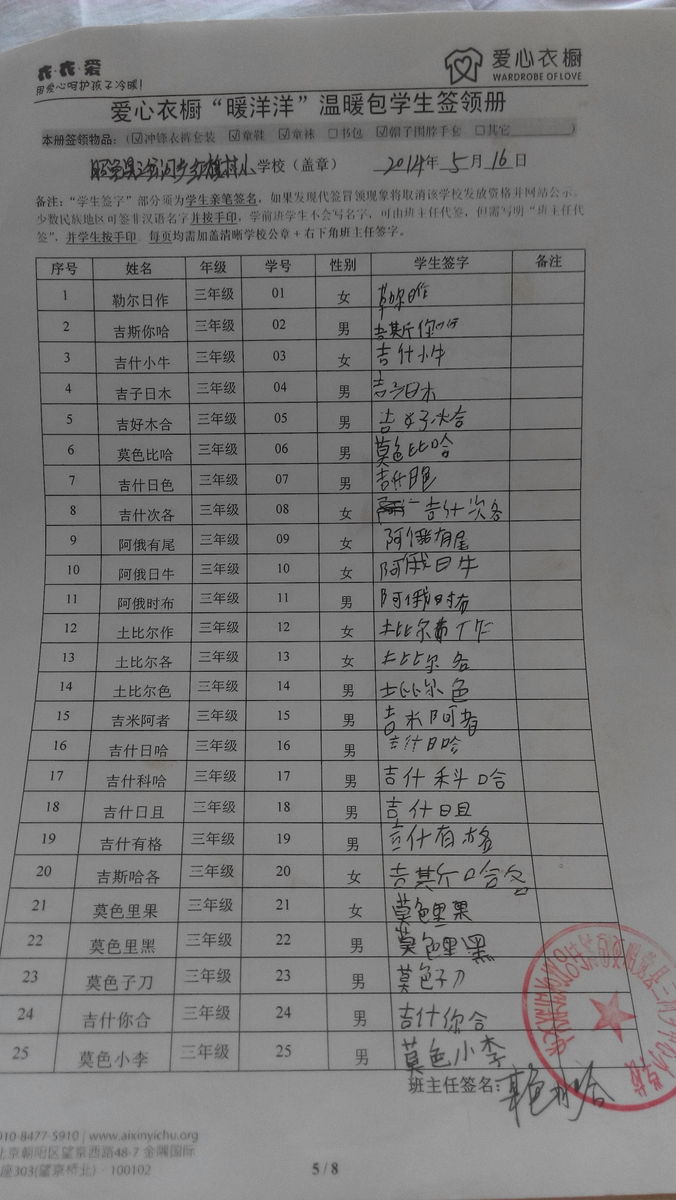 衣·衣·爱
用爱心呵护孩子冷暖!
爱心衣橱
WARDROBE OF LOVE
爱心衣橱“暖洋洋”温暖包学生签领册
本册签领物品：(☑冲锋衣裤套装 ☑童鞋 ☑童袜 □书包 ☑帽子围脖手套 □其它________)
小学校（盖章） 2014年5月16日
备注：“学生签字”部分须为学生亲笔签名，如果发现代签冒领现象将取消该学校发放资格并网站公示。
少数民族地区可签非汉语名字并按手印，学前班学生不会写名字，可由班主任代签，但需写明“班主任代
签”，并学生按手印。每页均需加盖清晰学校公章+右下角班主任签字。
序号 姓名 年级 学号 性别 学生签字 备注
1 勒尔日作 三年级 01 女 勒尔日作
2 吉斯你哈 三年级 02 男 吉斯你哈
3 吉什小牛 三年级 03 女 吉什小牛
4 吉子日木 三年级 04 男 吉子日木
5 吉好木合 三年级 05 男 吉好木合
6 莫色比哈 三年级 06 男 莫色比哈
7 吉什日色 三年级 07 男 吉什日色
8 吉什次各 三年级 08 女 吉什次各
9 阿俄有尾 三年级 09 女 阿俄有尾
10 阿俄日牛 三年级 10 女 阿俄日牛
11 阿俄时布 三年级 11 男 阿俄时布
12 土比尔作 三年级 12 女 土比尔作
13 土比尔各 三年级 13 女 土比尔各
14 土比尔色 三年级 14 男 土比尔色
15 吉米阿者 三年级 15 男 吉米阿者
16 吉什日哈 三年级 16 男 吉什日哈
17 吉什科哈 三年级 17 男 吉什科哈
18 吉什日且 三年级 18 男 吉什日且
19 吉什有格 三年级 19 男 吉什有格
20 吉斯哈各 三年级 20 女 吉斯哈各
21 莫色里果 三年级 21 女 莫色里果
22 莫色里黑 三年级 22 男 莫色里黑
23 莫色子刀 三年级 23 男 莫色子刀
24 吉什你合 三年级 24 男 吉什你合
25 莫色小李 三年级 25 男 莫色小李
班主任签名:
010-8477-5910 | www.aixinyichu.org
北京朝阳区望京西路48-7 金隅国际
座303(望京桥北) · 100102
5 / 8